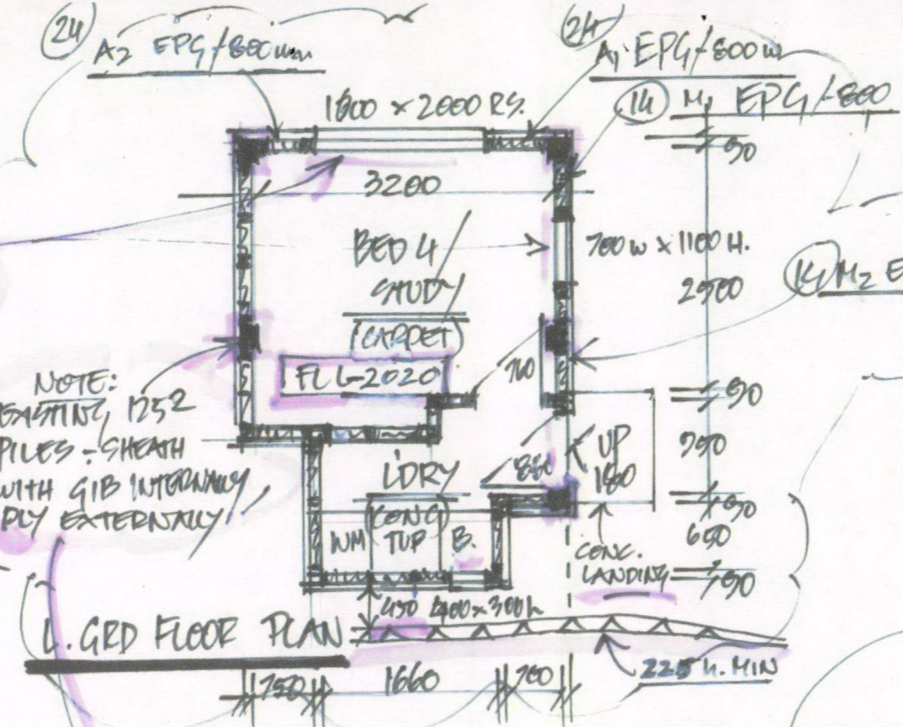 24
A2 EPG/800mm
24
A1 EPG/800w
14 M1 EPG/-800
1800 x 2000 RS.
90
3200
BED 4/
STUDY
(CARPET)
FLL-2020
700w x 1100H.
2900
M2 E
760
NOTE:
EXISTING 1252
PILES - SHEATH
WITH GIB INTERNALLY
PLY EXTERNALLY
90
UP
180
860
L'DRY
(CONC)
WM TUB B.
90
CONC.
LANDING
90
450
x 300h
L. GRD FLOOR PLAN
225 H. MIN
750 1660 700